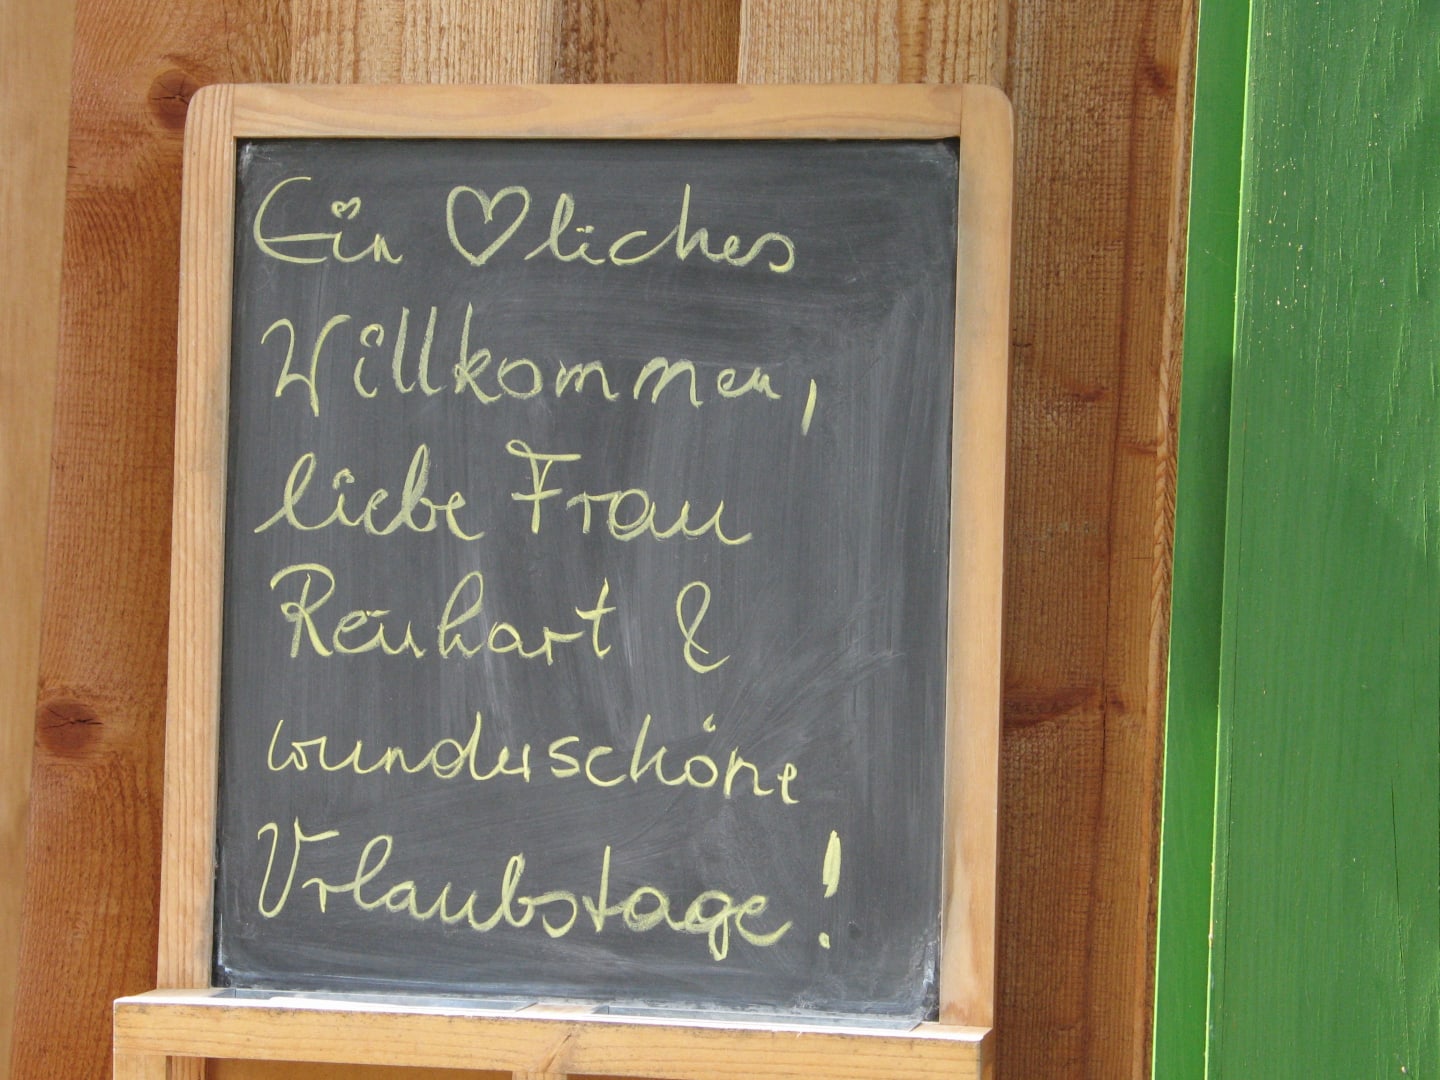 Ein ♡liches
Willkommen,
liebe Frau
Reinhart &
wunderschöne
Urlaubstage!